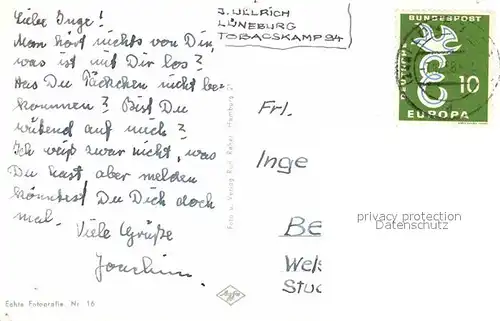 Liebe Inge!
Man hört nichts von Dir,
was ist mit Dir los?
Has Du Päckchen nicht be-
kommen? Bist Du
wütend auf mich?
Ich weiß zwar nicht, was
Du hast aber melden
könntest Du Dich doch
mal.
Viele Grüße
Joachim.
Echte Fotografie Nr. 16
Foto u. Verlag Rud. Reher, Hamburg
Agfa
J. ULLRICH
LÜNEBURG
TOBACSKAMP 34
DEUTSCHE
BUNDESPOST
10
EUROPA
Frl.
Inge
privacy protection
Datenschutz